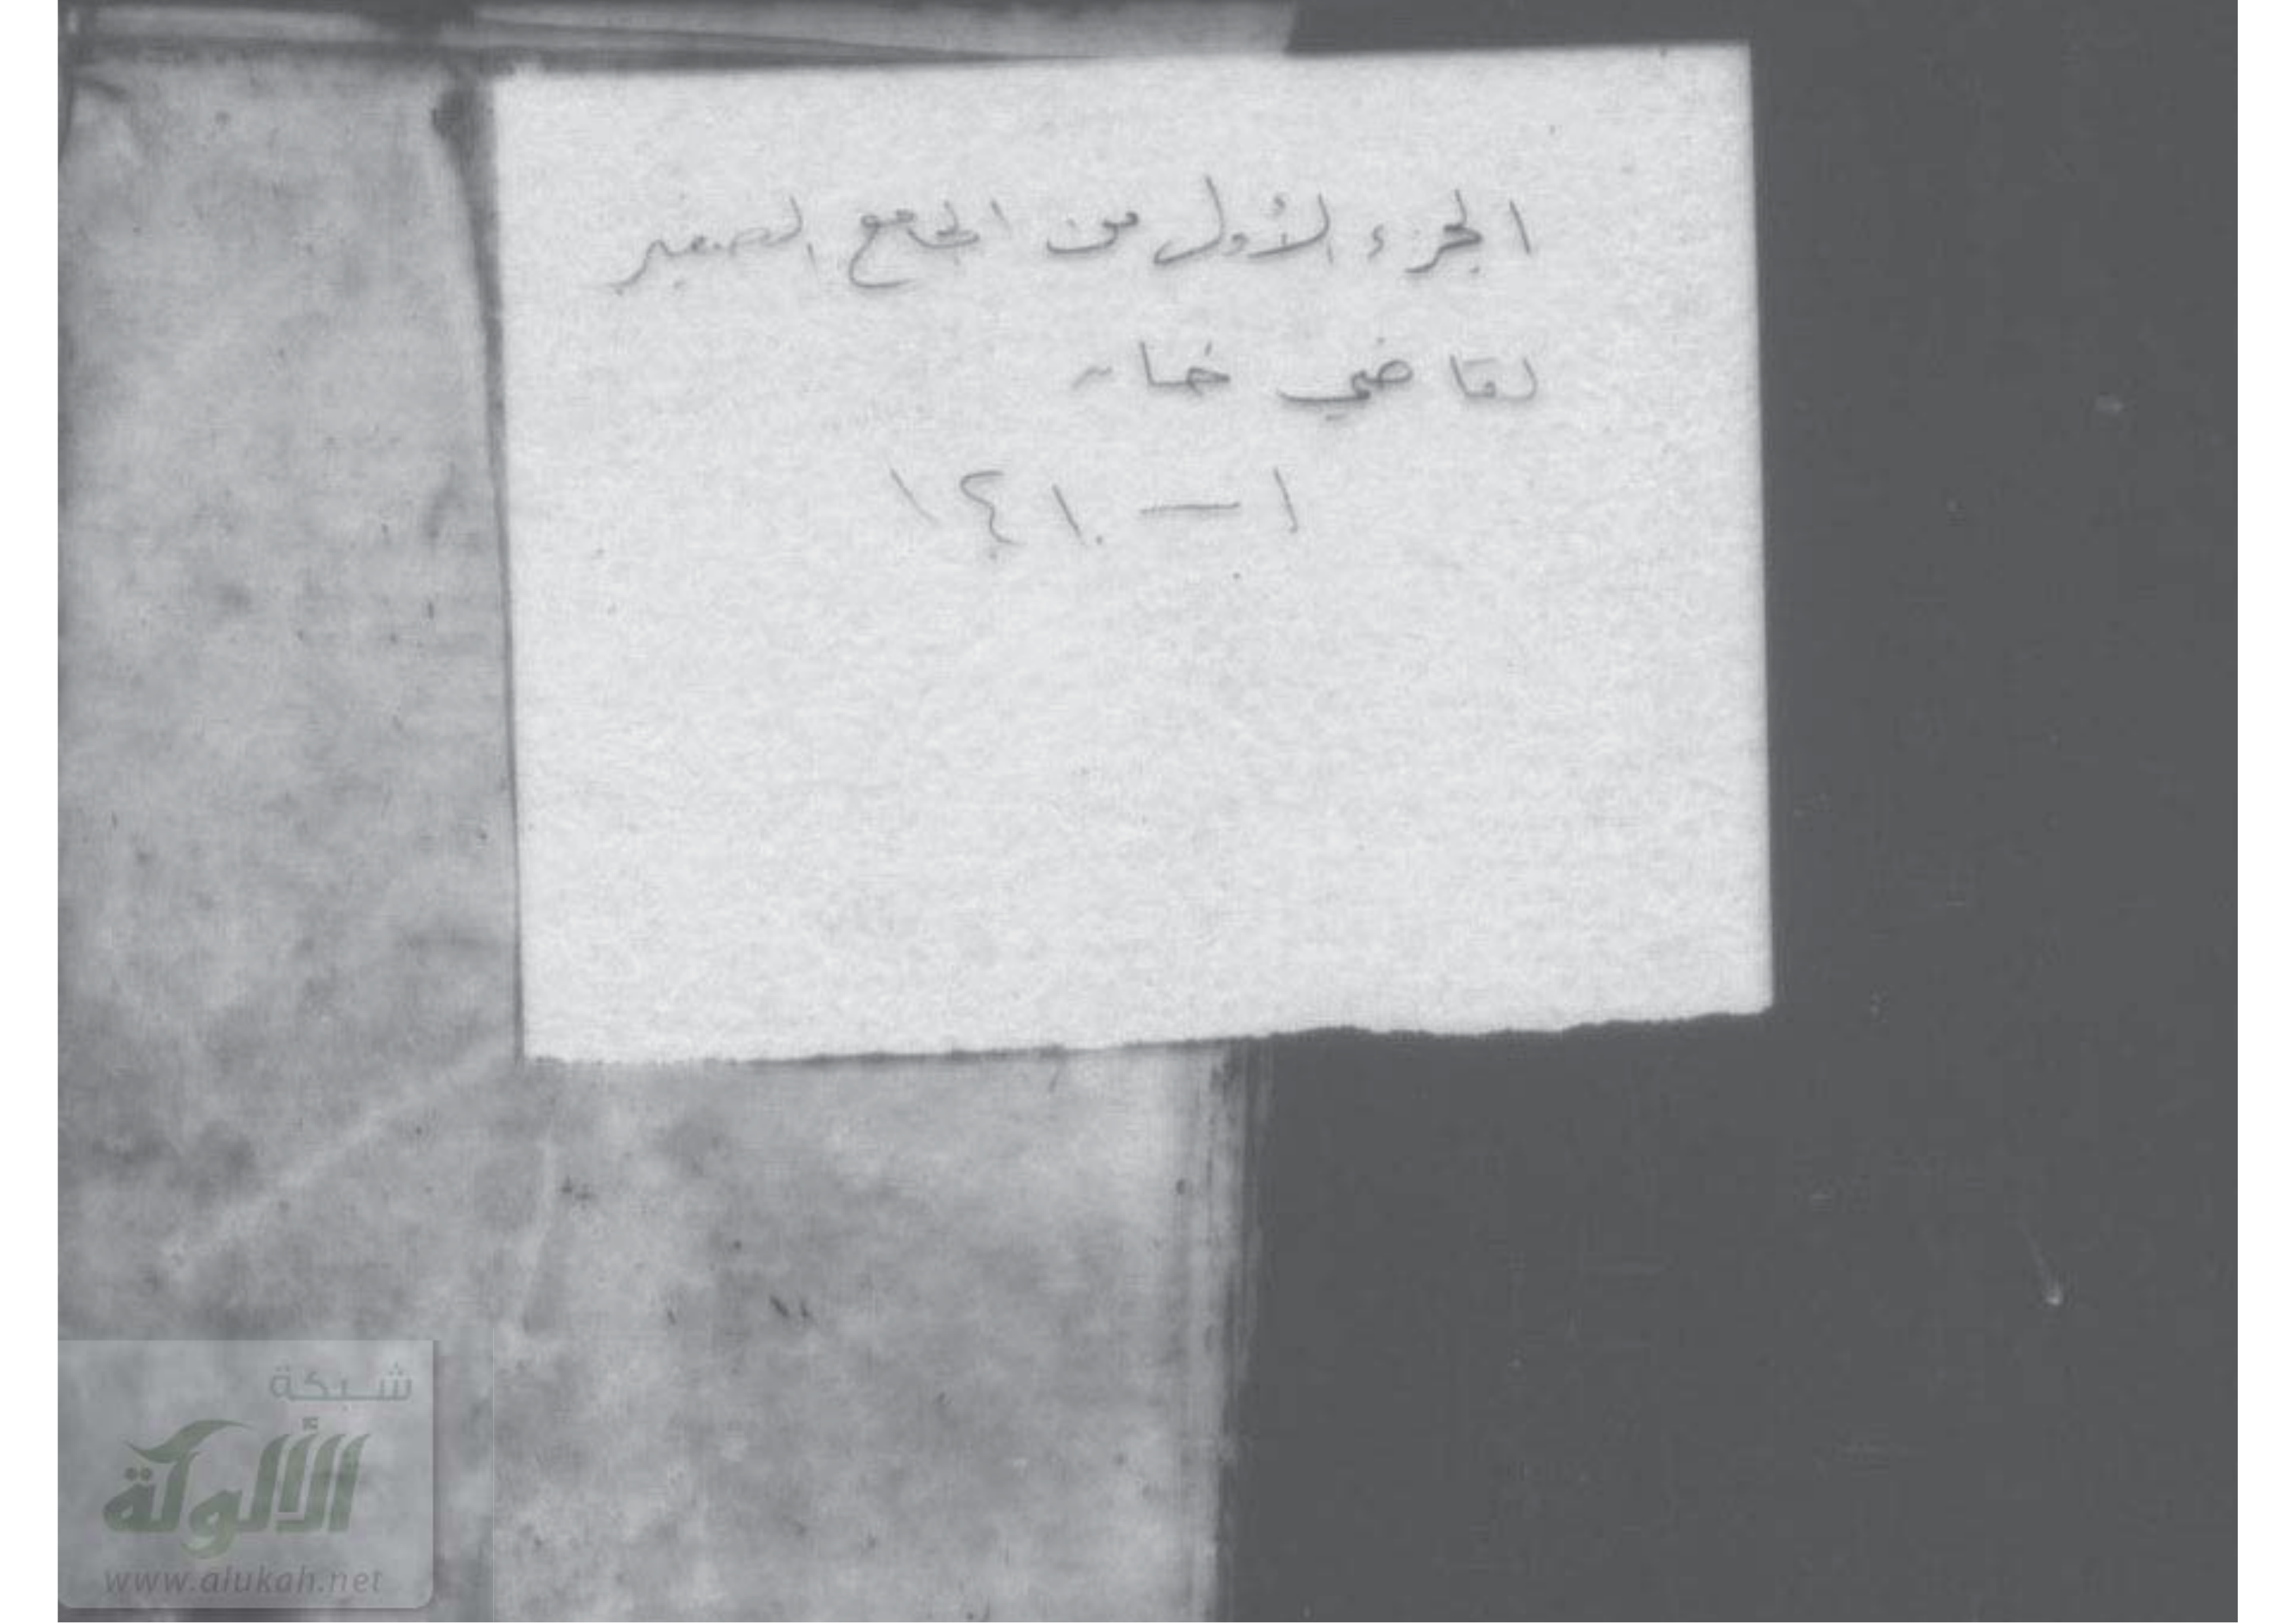 الجزء الأول من الجامع الصغير
لقاضي خان
١ — ١٤١٠
شبكة
الألوكة
www.alukah.net